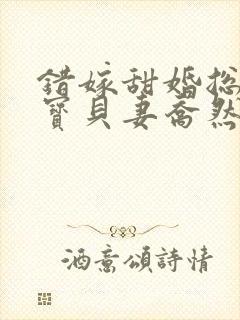 錯嫁甜婚總
寶貝妻喬然
酒意頌詩情